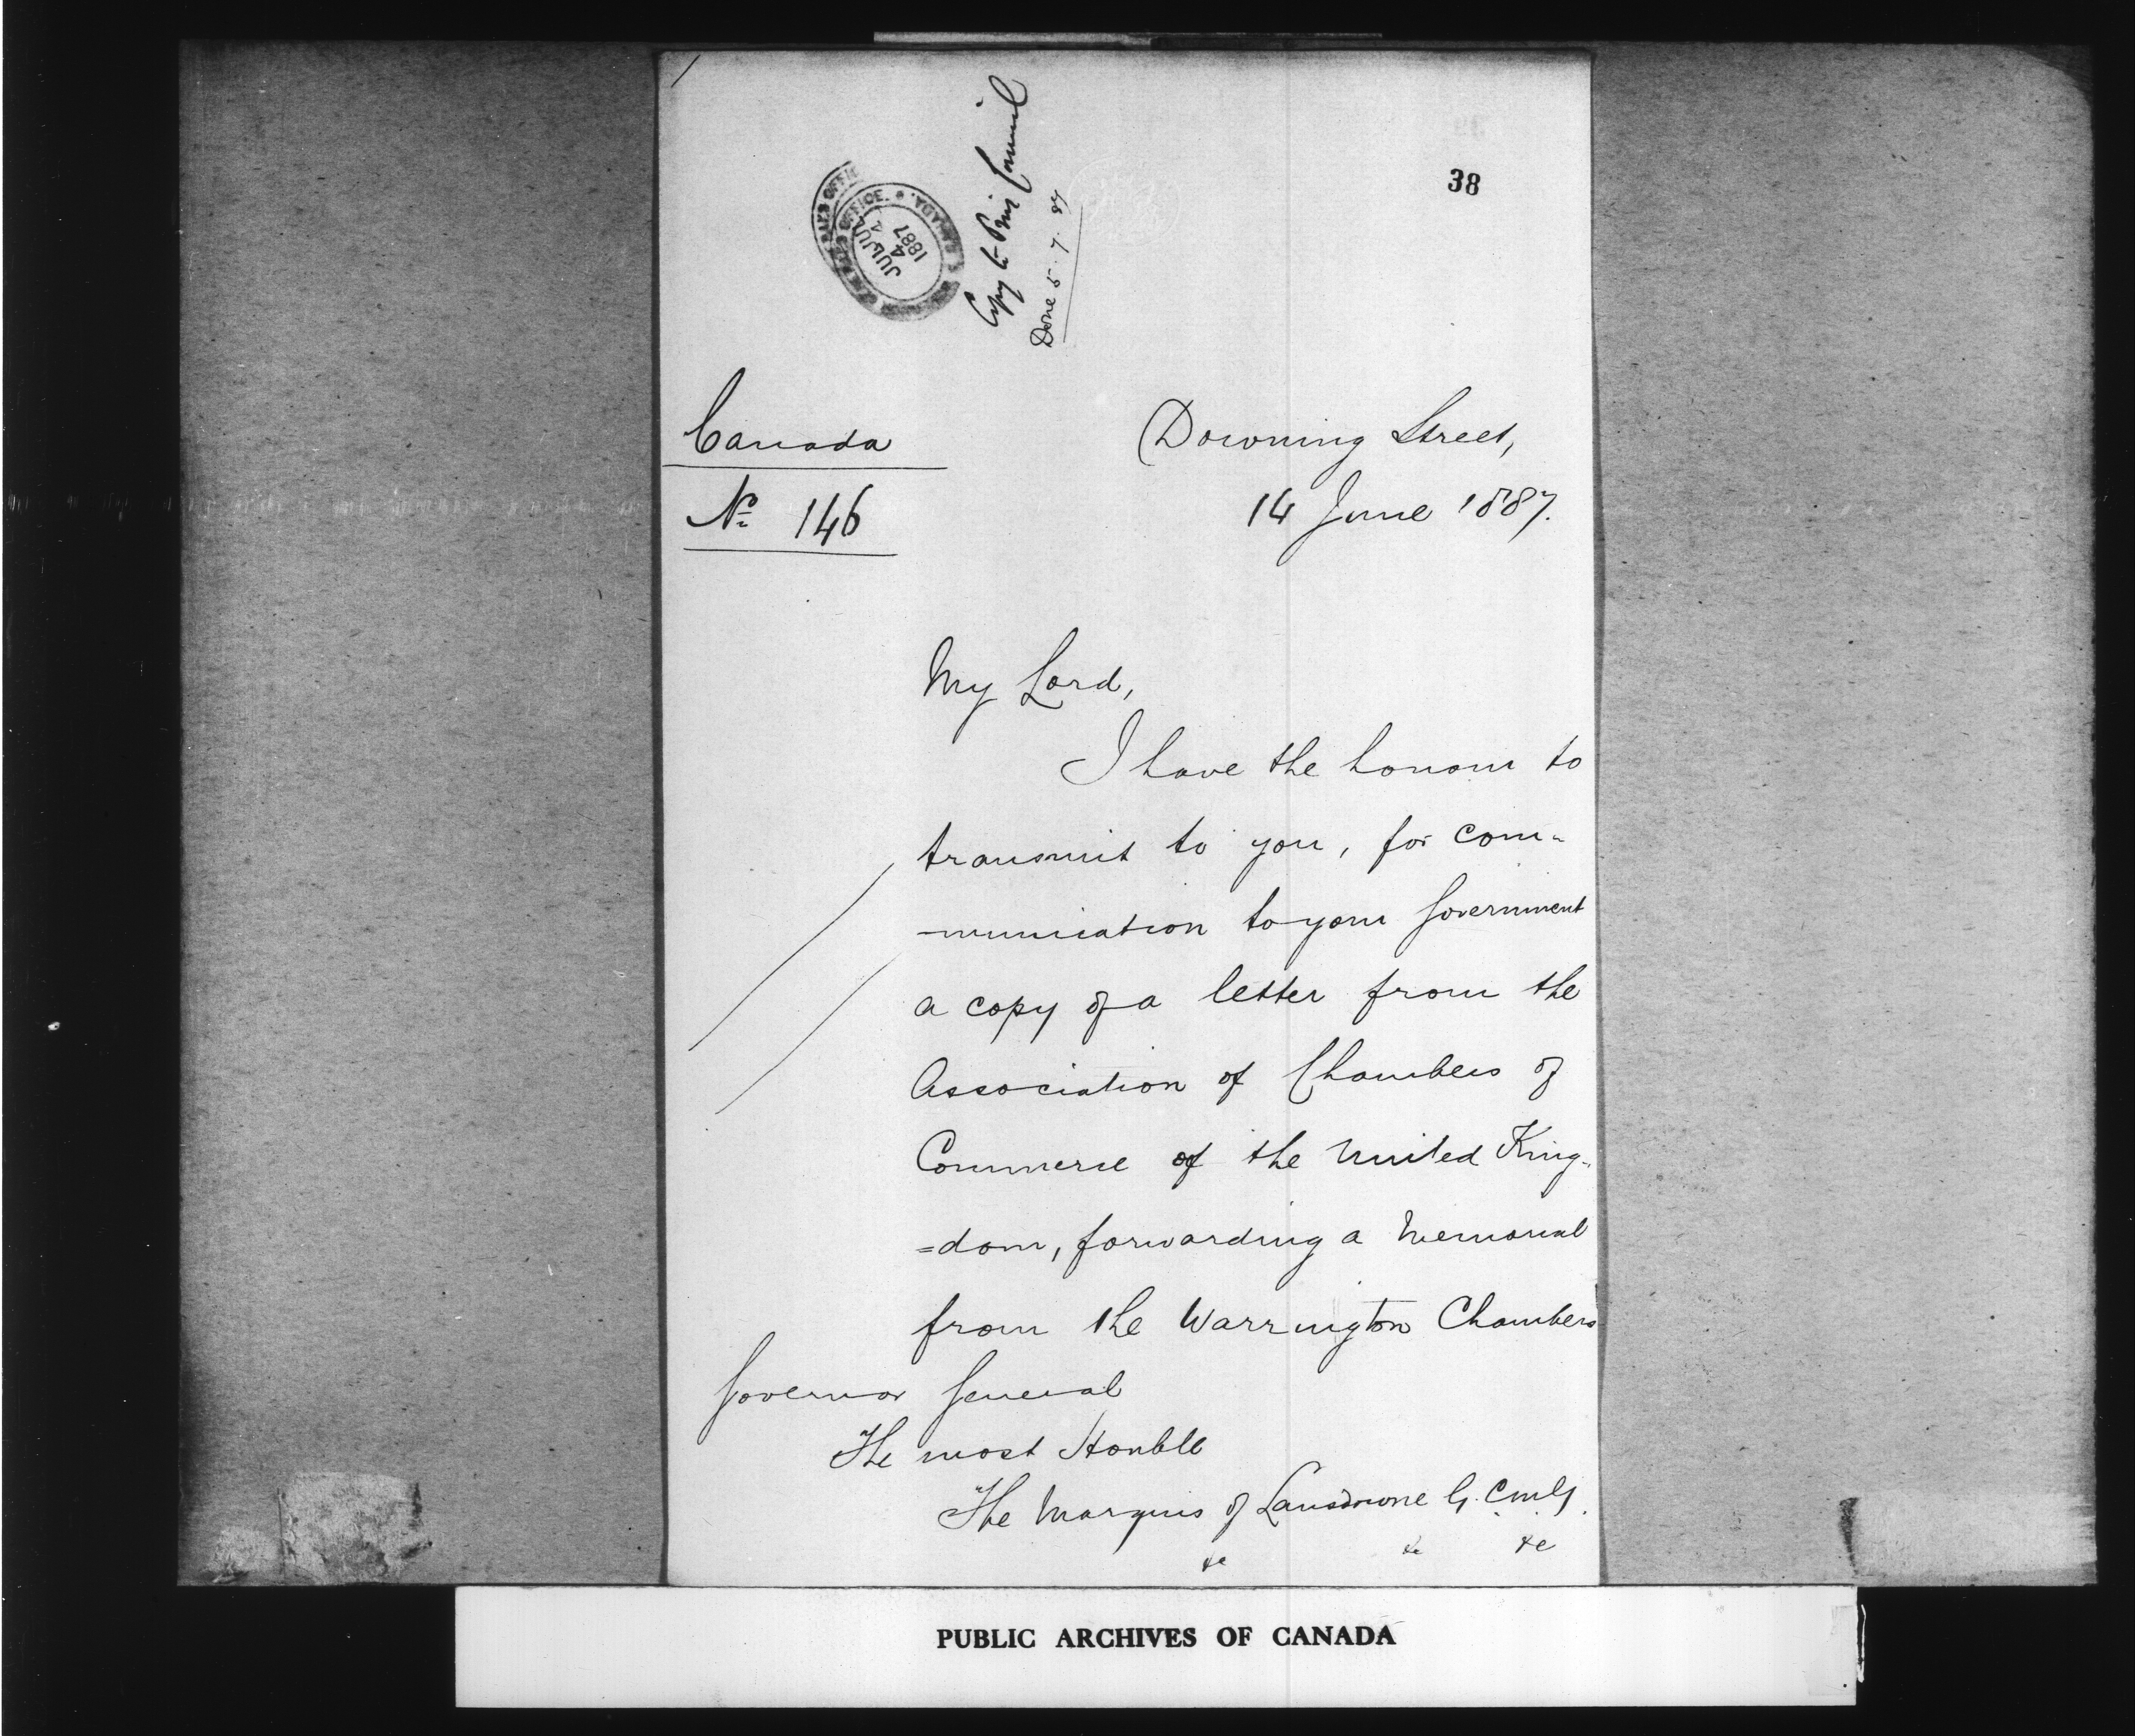 38
Copy to Privy Council
Done 5.7.87
OFFICE. CANADA.
JUL
4
1887
Canada
No 146
Downing Street,
14 June 1887.
My Lord,
I have the honour to
transmit to you, for com-
-munication to your Government
a copy of a letter from the
Association of Chambers of
Commerce of the United King-
=dom, forwarding a Memorial
from the Warrington Chambers
Governor General
The most Honble
The Marquis of Lansdowne G.C.M.G.
&c &c &c
PUBLIC ARCHIVES OF CANADA